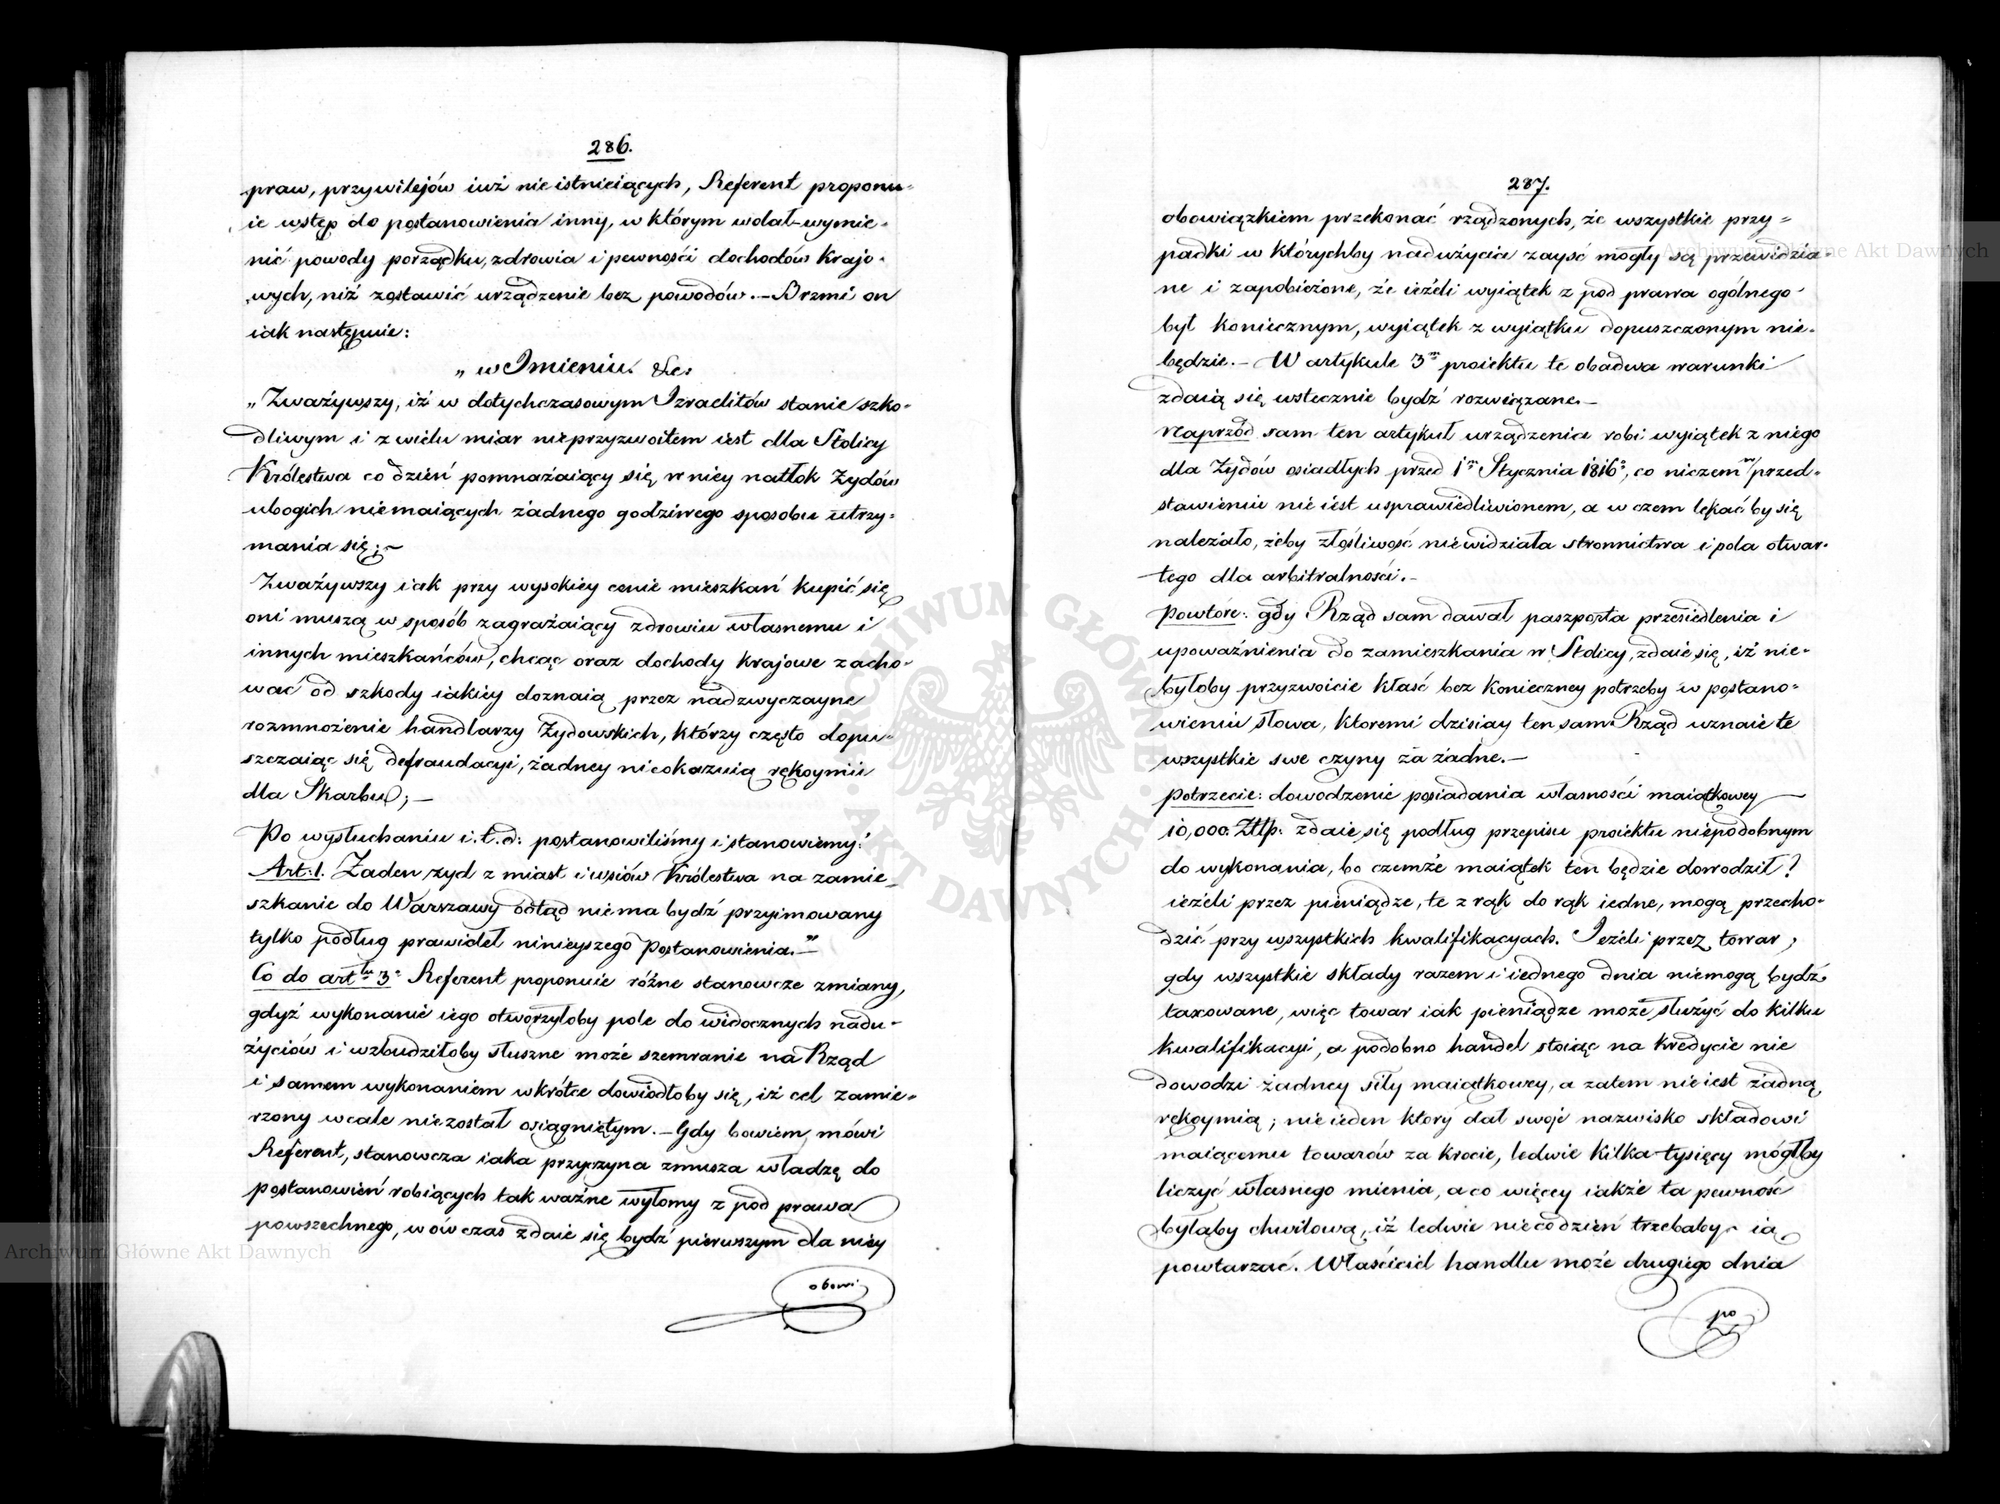 286.
praw, przywilejów iuż nie istnieiących, Referent proponu-
ie wstęp do postanowienia inny, w którym wolał wymie-
nić powody porządku, zdrowia i pewności dochodów Krajo-
wych, niż zostawić urządzenie bez powodów. – Brzmi on
iak następuie:
„w Imieniu. &c:
„Zważywszy, iż w dotychczasowym Izraelitów stanie szko-
dliwym i z wielu miar nieprzyzwoitem iest dla Stolicy
Królestwa co dzień pomnażaiący się w niey natłok Żydów
ubogich niemaiących żadnego godziwego sposobu utrzy-
mania się; –
Zważywszy iak przy wysokiey cenie mieszkań kupić się
oni muszą w sposób zagrażaiący zdrowiu własnemu i
innych mieszkańców, chcąc oraz dochody krajowe zacho-
wać od szkody iakiey doznaią przez nadzwyczayne
rozmnożenie handlarzy Żydowskich, którzy często dopu-
szczaiąc się defraudacyi, żadney nieokazuią rękoymii
dla Skarbu; –
Po wysłuchaniu i. t. d: postanowiliśmy i stanowiemy:
Art: 1. Żaden żyd z miast i wsiów Królestwa na zamie-
szkanie do Warszawy odtąd niema bydź przyimowany
tylko podług prawideł ninieyszego Postanowienia.–"
Co do artłu 3o Referent proponuie różne stanowcze zmiany,
gdyż wykonanie iego otworzyłoby pole do widocznych nadu-
życiów i wzbudziłoby słuszne może szemranie na Rząd
i samem wykonaniem wkrótce dowiodłoby się, iż cel zamie-
rzony wcale niezostał osiągniętym. – Gdy bowiem, mówi
Referent, stanowcza iaka przyczyna zmusza władzę do
postanowień robiących tak ważne wyłomy z pod prawa
powszechnego, wówczas zdaie się bydź pierwszym dla niey
obowi
287.
obowiązkiem przekonać rządzonych, że wszystkie przy-
padki w którychby nadużycia zayść mogły są przewidzia-
ne i zapobieżone, że ieżeli wyiątek z pod prawa ogólnego
był koniecznym, wyiątek z wyiątku dopuszczonym nie-
będzie. – W artykule 3m proiektu te obadwa warunki
zdaią się wstecznie bydź rozwiązane. –
Naprzód sam ten artykuł urządzenia robi wyiątek z niego
dla Żydów osiadłych przed 1m Stycznia 1816o, co niczem w przed-
stawieniu nie iest usprawiedliwionem, a w czem lękać by się
należało, żeby złośliwość niewidziała stronnictwa i pola otwar-
tego dla arbitralności. –
Powtóre: gdy Rząd sam dawał paszporta przesiedlenia i
upoważnienia do zamieszkania w Stolicy, zdaie się, iż nie-
byłoby przyzwoicie kłaść bez konieczney potrzeby w postano-
wieniu słowa, ktoremi dzisiay ten sam Rząd uznaie te
wszystkie swe czyny za żadne. –
Potrzecie: dowodzenie posiadania własności maiątkowey
10,000. Złłp: zdaie się podług przepisu proiektu niepodobnym
do wykonania, bo czemże maiątek ten będzie dowodził?
ieżeli przez pieniądze, te z rąk do rąk iedne, mogą przecho-
dzić przy wszystkich kwalifikacyach. Ieżeli przez towar,
gdy wszystkie składy razem i iednego dnia niemogą bydź
taxowane, więc towar iak pieniądze może służyć do kilku
kwalifikacyi, a podobno handel stoiąc na kredycie nie
dowodzi żadney siły maiątkowey, a zatem nie iest żadną
rękoymią; nie ieden który dał swoje nazwisko składowi
maiącemu towarów za krocie, ledwie kilka tysięcy mógłby
liczyć własnego mienia, a co więcey iakże ta pewność
byłaby chwilową, iż ledwie nie codzień trzebaby ią
powtarzać. Właściciel handlu może drugiego dnia
po
Archiwum Główne Akt Dawnych
Archiwum Główne Akt Dawnych
ARCHIWUM GŁÓWNE · AKT DAWNYCH ·